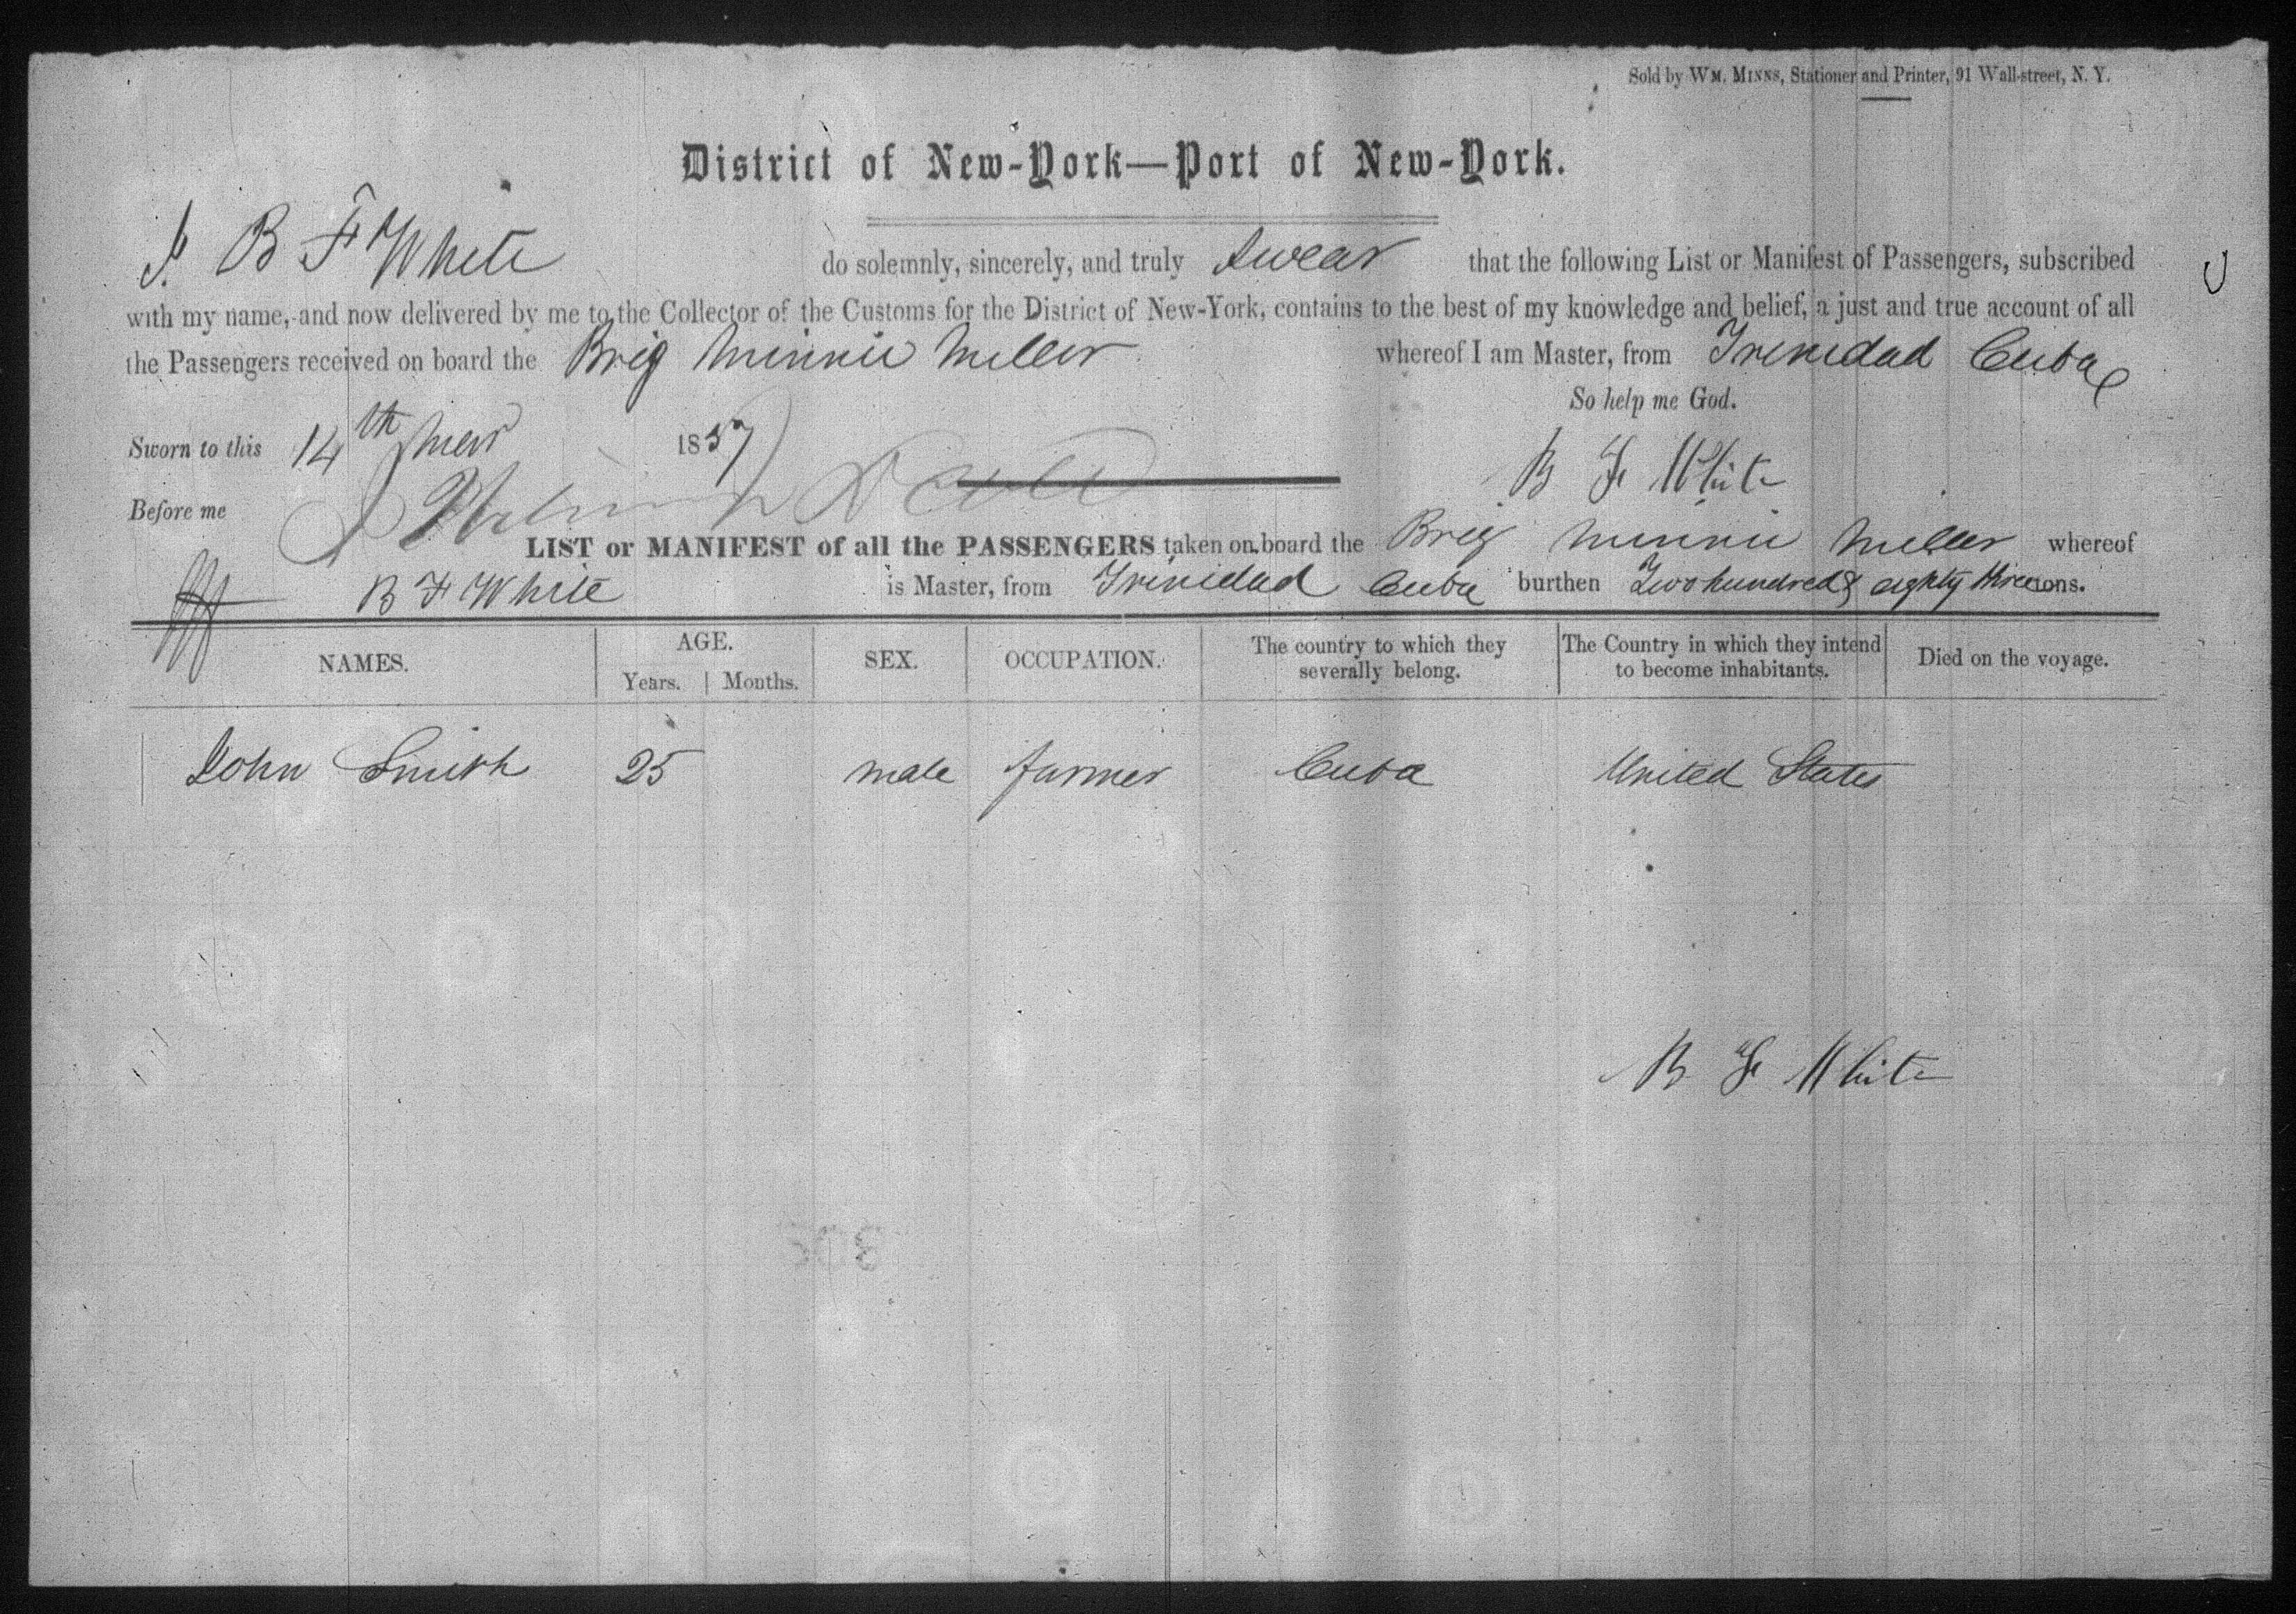 Sold by WM. MINNS, Stationer and Printer, 91 Wall-street, N. Y.
District of New-York—Port of New-York.
I B F White do solemnly, sincerely, and truly swear that the following List or Manifest of Passengers, subscribed
with my name, and now delivered by me to the Collector of the Customs for the District of New-York, contains to the best of my knowledge and belief, a just and true account of all
the Passengers received on board the Brig Minnie Miller whereof I am Master, from Trinidad Cuba
So help me God.
Sworn to this 14th 1857
B F White
Before me
LIST or MANIFEST of all the PASSENGERS taken on board the Brig Minnie Miller whereof
B F White is Master, from Trinidad Cuba burthen Two hundred & eighty three tons.
NAMES. AGE. Years. Months. SEX. OCCUPATION. The country to which they severally belong. The Country in which they intend to become inhabitants. Died on the voyage.
John Smith 25 male farmer Cuba United States
B F White